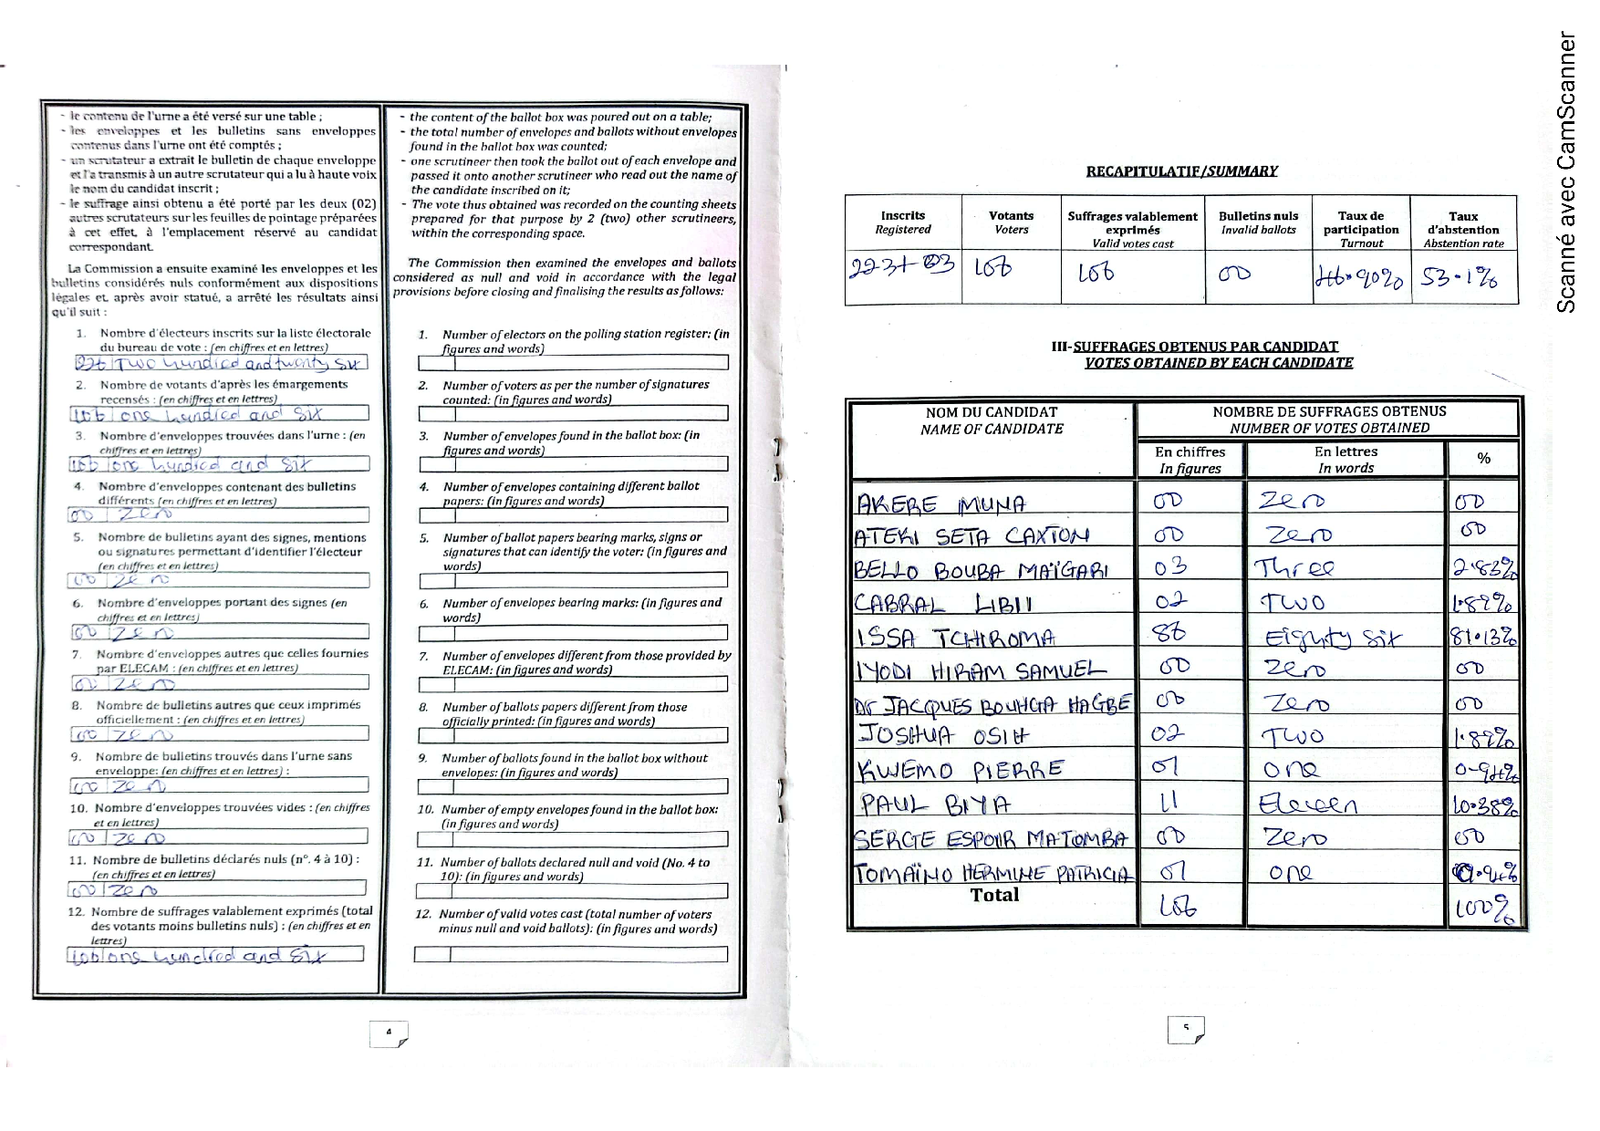 - le contenu de l'urne a été versé sur une table ;
- les enveloppes et les bulletins sans enveloppes
contenus dans l'urne ont été comptés ;
- un scrutateur a extrait le bulletin de chaque enveloppe
et l'a transmis à un autre scrutateur qui a lu à haute voix
le nom du candidat inscrit ;
- le suffrage ainsi obtenu a été porté par les deux (02)
autres scrutateurs sur les feuilles de pointage préparées
à cet effet, à l'emplacement réservé au candidat
correspondant.
La Commission a ensuite examiné les enveloppes et les
bulletins considérés nuls conformément aux dispositions
légales et, après avoir statué, a arrêté les résultats ainsi
qu'il suit :
1. Nombre d'électeurs inscrits sur la liste électorale
du bureau de vote : (en chiffres et en lettres)
Two hundred and twenty six
2. Nombre de votants d'après les émargements
recensés : (en chiffres et en lettres)
106 one hundred and six
3. Nombre d'enveloppes trouvées dans l'urne : (en
chiffres et en lettres)
106 one hundred and six
4. Nombre d'enveloppes contenant des bulletins
différents (en chiffres et en lettres)
00 zero
5. Nombre de bulletins ayant des signes, mentions
ou signatures permettant d'identifier l'électeur
(en chiffres et en lettres)
00 zero
6. Nombre d'enveloppes portant des signes (en
chiffres et en lettres)
00 zero
7. Nombre d'enveloppes autres que celles fournies
par ELECAM : (en chiffres et en lettres)
00 zero
8. Nombre de bulletins autres que ceux imprimés
officiellement : (en chiffres et en lettres)
00 zero
9. Nombre de bulletins trouvés dans l'urne sans
enveloppe: (en chiffres et en lettres) :
00 zero
10. Nombre d'enveloppes trouvées vides : (en chiffres
et en lettres)
00 zero
11. Nombre de bulletins déclarés nuls (n°. 4 à 10) :
(en chiffres et en lettres)
00 zero
12. Nombre de suffrages valablement exprimés (total
des votants moins bulletins nuls) : (en chiffres et en
lettres)
106 one hundred and six
- the content of the ballot box was poured out on a table;
- the total number of envelopes and ballots without envelopes
found in the ballot box was counted;
- one scrutineer then took the ballot out of each envelope and
passed it onto another scrutineer who read out the name of
the candidate inscribed on it;
- The vote thus obtained was recorded on the counting sheets
prepared for that purpose by 2 (two) other scrutineers,
within the corresponding space.
The Commission then examined the envelopes and ballots
considered as null and void in accordance with the legal
provisions before closing and finalising the results as follows:
1. Number of electors on the polling station register: (in
figures and words)
2. Number of voters as per the number of signatures
counted: (in figures and words)
3. Number of envelopes found in the ballot box: (in
figures and words)
4. Number of envelopes containing different ballot
papers: (in figures and words)
5. Number of ballot papers bearing marks, signs or
signatures that can identify the voter: (in figures and
words)
6. Number of envelopes bearing marks: (in figures and
words)
7. Number of envelopes different from those provided by
ELECAM: (in figures and words)
8. Number of ballots papers different from those
officially printed: (in figures and words)
9. Number of ballots found in the ballot box without
envelopes: (in figures and words)
10. Number of empty envelopes found in the ballot box:
(in figures and words)
11. Number of ballots declared null and void (No. 4 to
10): (in figures and words)
12. Number of valid votes cast (total number of voters
minus null and void ballots): (in figures and words)
4
RECAPITULATIF/SUMMARY
Inscrits Votants Suffrages valablement exprimés Bulletins nuls Taux de participation Taux d'abstention
Registered Voters Valid votes cast Invalid ballots Turnout Abstention rate
106 106 00 46.90% 53.1%
III-SUFFRAGES OBTENUS PAR CANDIDAT
VOTES OBTAINED BY EACH CANDIDATE
NOM DU CANDIDAT NOMBRE DE SUFFRAGES OBTENUS
NAME OF CANDIDATE NUMBER OF VOTES OBTAINED
En chiffres En lettres %
In figures In words
AKERE MUNA 00 Zero 00
ATEKI SETA CAXTON 00 Zero 00
BELLO BOUBA MAÏGARI 03 Three 2.83%
CABRAL LIBII 02 TWO 1.89%
ISSA TCHIROMA 86 Eighty Six 81.13%
IYODI HIRAM SAMUEL 00 zero 00
Dr JACQUES BOUHGA HAGBE 00 Zero 00
JOSHUA OSIH 02 TWO 1.89%
KWEMO PIERRE 01 one 0.94%
PAUL BIYA 11 Eleven 10.38%
SERGE ESPOIR MATOMBA 00 Zero 00
TOMAÏNO HERMINE PATRICIA 01 one 0.94%
Total 106 100%
5
Scanné avec CamScanner